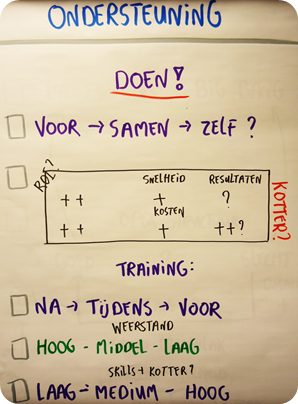 ONDERSTEUNING
DOEN!
VOOR → SAMEN → ZELF ?
ROI?
SNELHEID RESULTATEN
++ + ?
KOSTEN
++ + ++?
KOTTER?
TRAINING:
NA → TIJDENS → VOOR
WEERSTAND
HOOG - MIDDEL - LAAG
SKILLS + KOTTER?
LAAG - MEDIUM - HOOG